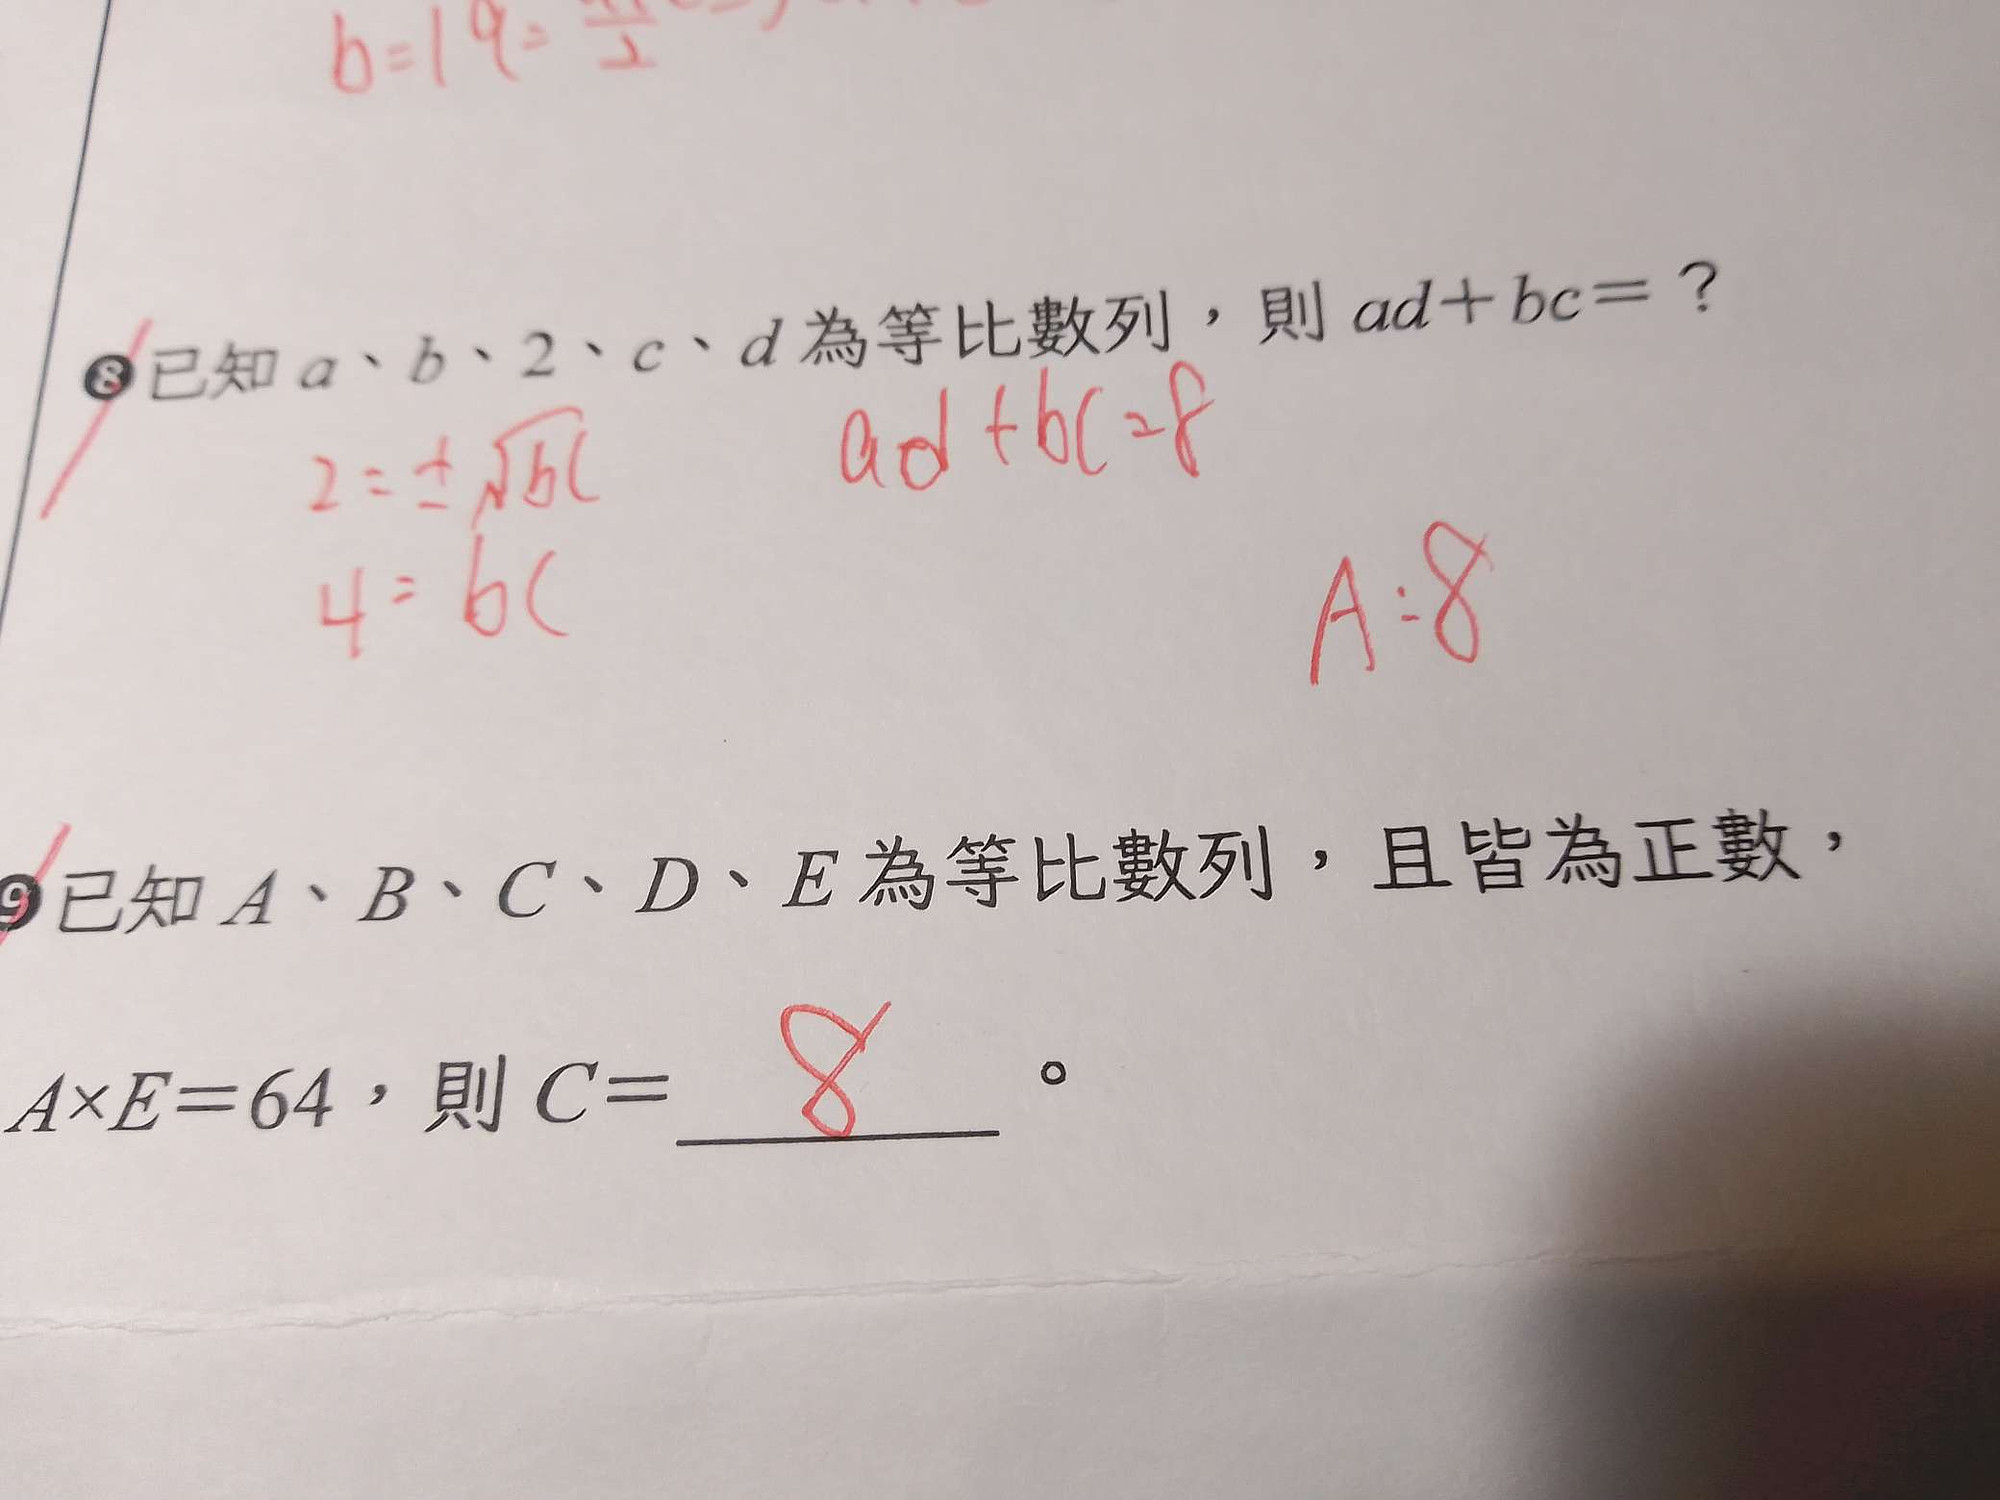 b=19=
❽已知 a、b、2、c、d 為等比數列，則 ad＋bc＝？
2=±√bc ad+bc=8
4=bc
A:8
❾已知 A、B、C、D、E 為等比數列，且皆為正數，
A×E＝64，則 C＝ 8 。